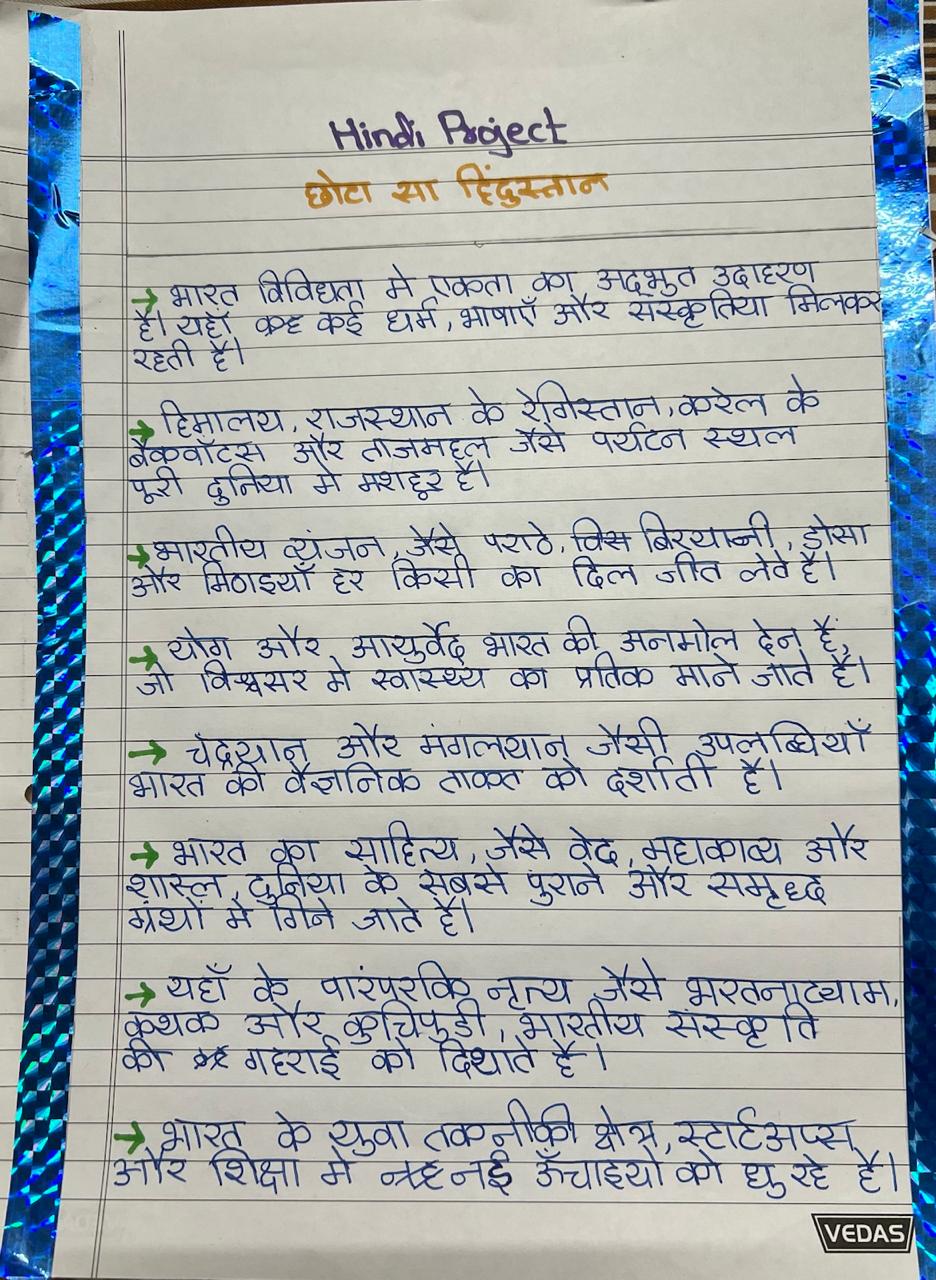 Hindi Project
छोटा सा हिंदुस्तान
→ भारत विविधता मे एकता का अदभुत उदाहरण
है। यहाँ कई धर्म, भाषाएँ और संस्कृतिया मिलकर
रहती है।
→ हिमालय, राजस्थान के रेगिस्तान, करेल के
बैकवॉटस और ताजमहल जैसे पर्यटन स्थल
पूरी दुनिया मे मशहूर है।
→ भारतीय व्यंजन, जैसे पराठे, बिरयानी, डोसा
और मिठाइयाँ हर किसी का दिल जीत लेते है।
→ योग और आयुर्वेद भारत की अनमोल देन है,
जो विश्वसर मे स्वास्थ्य का प्रतिक माने जाते है।
→ चंद्रयान और मंगलयान जैसी उपलब्धियाँ
भारत की वैज्ञनिक ताकत को दर्शाती है।
→ भारत का साहित्य, जैसे वेद, महाकाव्य और
शास्त्र, दुनिया के सबसे पुराने और समृध्द
ग्रंथों मे गिने जाते है।
→ यहाँ के पारंपरकि नृत्य जैसे भरतनाट्याम,
कथक और कुचिपुडी, भारतीय संस्कृति
की गहराई को दिथाते है।
→ भारत के युवा तकनीकी क्षेत्र, स्टार्टअप्स
और शिक्षा मे नई ऊँचाइयो को छु रहे है।
VEDAS